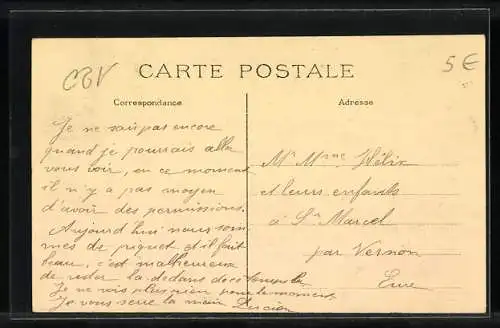 CBV
5€
CARTE POSTALE
Correspondance
Adresse
Je ne sais pas encore
quand je pourrais alle
vous voir, en ce moment
il n'y a pas moyen
d'avoir des permissions.
Aujourd'hui nous som
mes de piquet et il fait
beau, c'est malheureux
de rester la dedans de ce temps la
Je ne vois plus rien pour le moment
Je vous serre la main Lucien
Mr Mme Hélix
et leurs enfants
à St Marcel
par Vernon
Eure